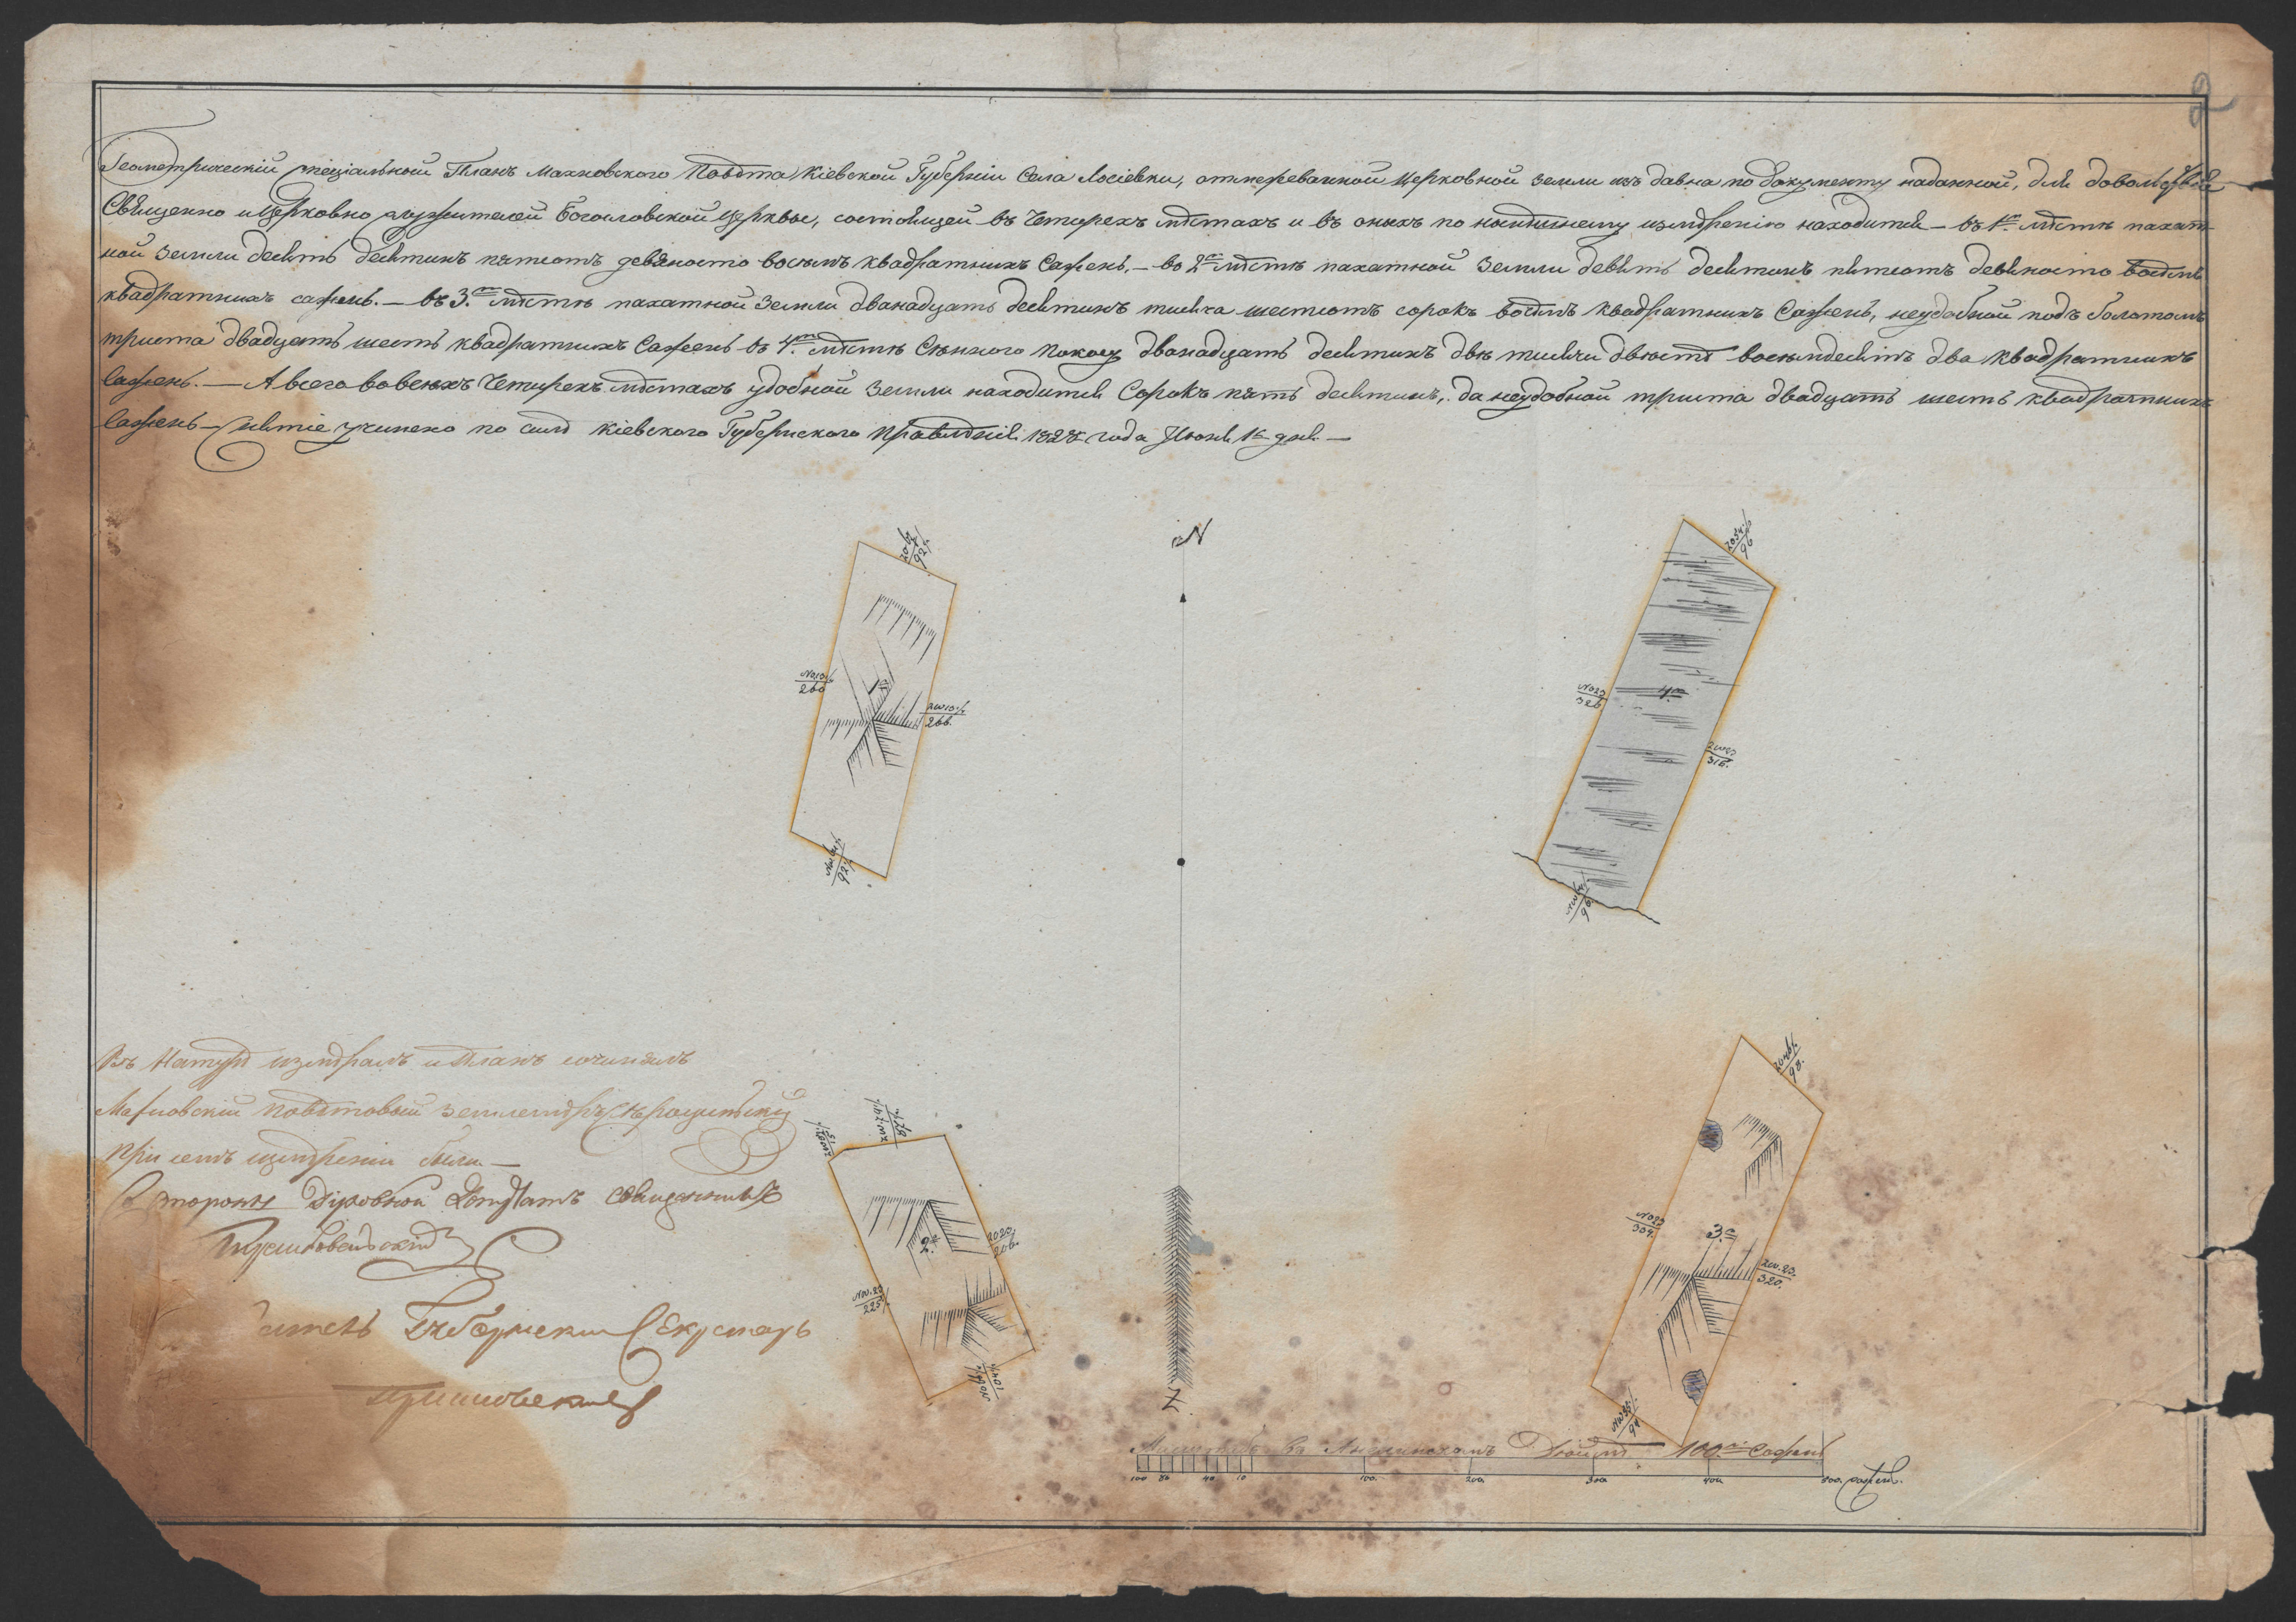 2
Геометрический специальной Планъ Махновского Повѣта Кіевской Губерніи Села Лосіевки, отмежеванной Церковной земли изъ давна по документу наданной, для доволствія
Священно и Церковно служителей Богословской Церквы, состоящей въ Четырехъ мѣстахъ и въ оныхъ по нынѣшнему измѣренію находится — въ 1мъ мѣстѣ пахат-
ной земли десять десятинъ пятсотъ девяносто восемъ квадратныхъ Сажень, — во 2мъ мѣстѣ пахатной земли девять десятинъ пятсотъ девяносто восѣмъ
квадратныхъ сажень. — въ 3.мъ мѣстѣ пахатной земли дванадцать десятинъ тысяча шестсотъ сорокъ восѣмъ квадратныхъ Сажень, неудобной подъ болотомъ
триста двадцать шесть квадратныхъ Сажень въ 4.мъ мѣстѣ Сѣнного покосу дванадцать десятинъ двѣ тысячи двѣстѣ восемдесятъ два квадратныхъ
Сажень. — А всего во всѣхъ Четырехъ мѣстахъ удобной земли находится Сорокъ пять десятинъ, да неудобной триста двадцать шесть квадратныхъ
Сажень — снятіе учинено по силѣ Кіевского Губернского Правлѣнія 1828 года Июня 1го дня. —
N
1
260
266.
92½
4.
326
316.
96
96.
Въ Натурѣ измѣралъ и Планъ сочинялъ
Махновскій повѣтовый землемѣръ
При семъ измѣреніи были —
Съ стороны Духовной Депутатъ священникъ
Губернски Секретарь
2.
206.
225½
104½
87½
3.
304.
320.
98.
Z
Масштабъ въ Англинскомъ Дюймѣ 100. Сажень
100 80 40 10 100. 200. 300 400. 500. сажень.